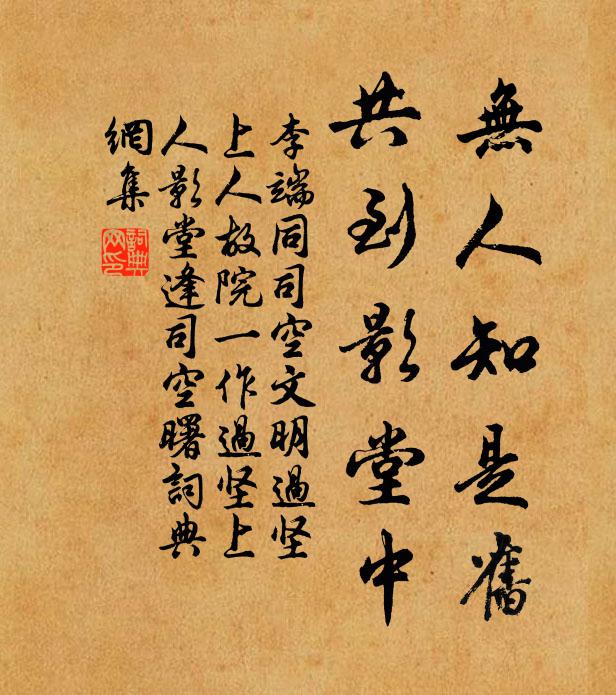 無人知是舊
共到影堂中
李端同司空文明過坚
上人故院一作過坚上
人影堂逢司空曙詞典
網集
詞典網印